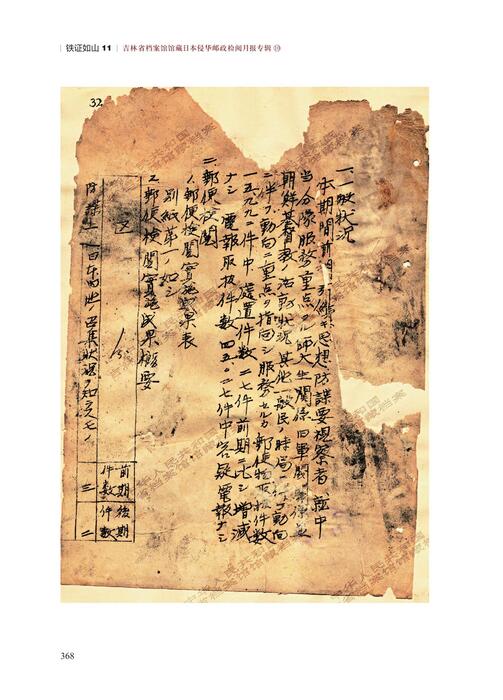 铁证如山 11 吉林省档案馆馆藏日本侵华邮政检阅月报专辑⑪
32
一、一般状況
本期間前 引継キ思想防諜要視察者 就中
当分隊服務重点タル師大生関係旧軍閥
朝鮮基督教ノ活動状況其他一般民ノ時局
ニ伴フ動向ニ重点ヲ指向シ服務セル 郵便物 件数
一五九九二件中處置件数二七件前期ニ比シ増減
ナシ 電報取扱件数四五〇二七件中容疑電報ナシ
二、郵便検閲
1.郵便検閲實施成果表
別紙第一ノ如シ
2.郵便検閲實施成果概要
区 分 前期件数 後期件数
召集状況ヲ 三 二
368